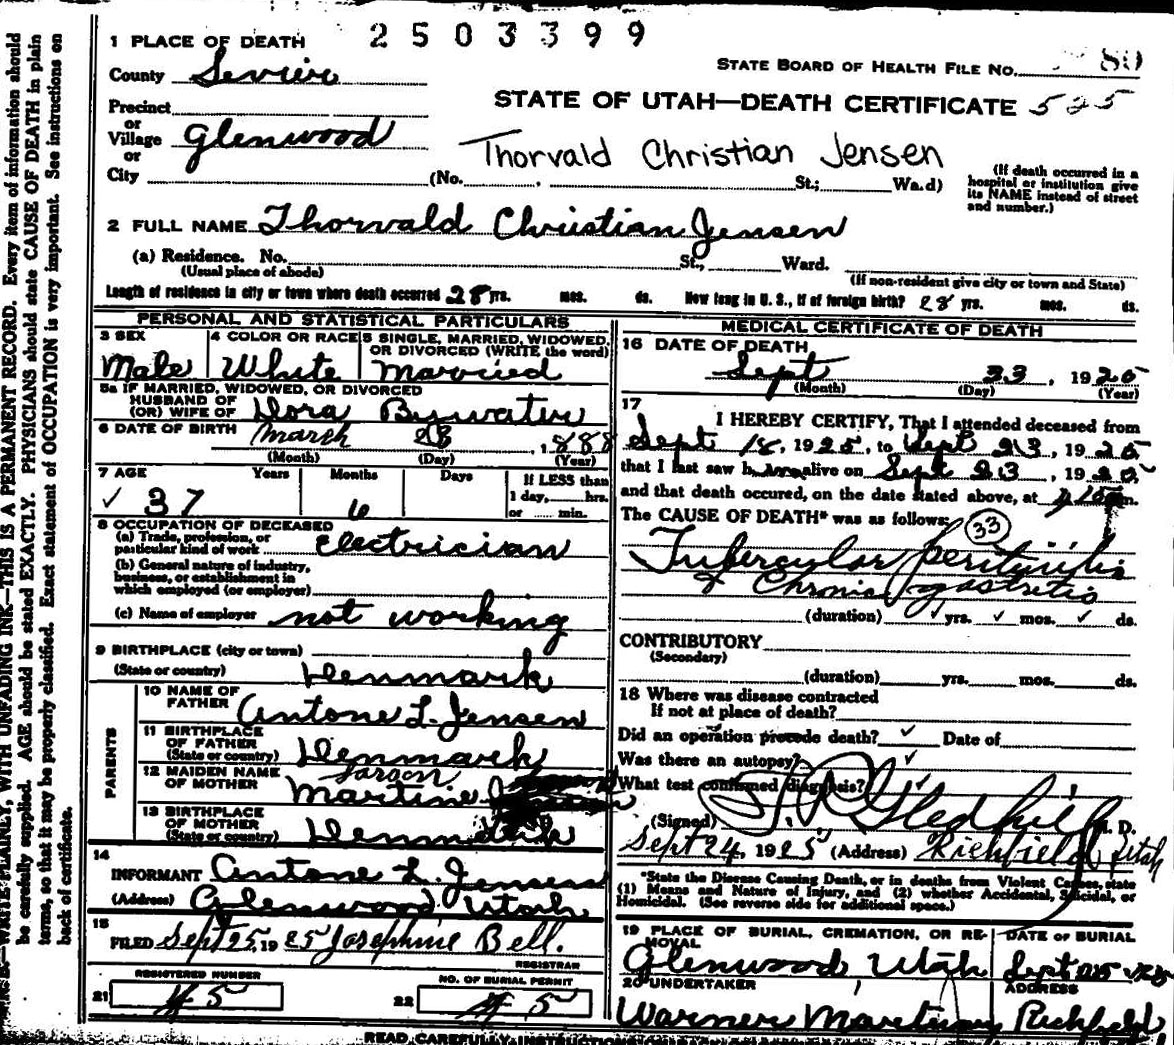 2503399
1 PLACE OF DEATH
STATE BOARD OF HEALTH FILE No. 80
County Sevier
STATE OF UTAH—DEATH CERTIFICATE 525
Precinct
or
Village Glenwood
or
Thorvald Christian Jensen
City (No. , St.; Wa.d)
(If death occurred in a hospital or institution give its NAME instead of street and number.)
2 FULL NAME Thorvald Christian Jensen
(a) Residence. No. St., Ward.
(Usual place of abode)
(If non-resident give city or town and State)
Length of residence in city or town where death occurred 28 yrs. mos. ds. How long in U. S., if of foreign birth? 28 yrs. mos. ds.
PERSONAL AND STATISTICAL PARTICULARS
3 SEX
Male
4 COLOR OR RACE
White
5 SINGLE, MARRIED, WIDOWED, OR DIVORCED (WRITE the word)
Married
5a IF MARRIED, WIDOWED, OR DIVORCED
HUSBAND OF
(OR) WIFE OF Dora Bywater
6 DATE OF BIRTH March 28, 1888
(Month) (Day) (Year)
7 AGE Years Months Days If LESS than
1 day, hrs.
or min.
✓ 37 6
8 OCCUPATION OF DECEASED
(a) Trade, profession, or
particular kind of work Electrician
(b) General nature of industry,
business, or establishment in
which employed (or employer)
(c) Name of employer not working
9 BIRTHPLACE (city or town)
(State or country) Denmark
PARENTS
10 NAME OF
FATHER Antone L. Jensen
11 BIRTHPLACE
OF FATHER
(State or country) Denmark
12 MAIDEN NAME
OF MOTHER Martine
13 BIRTHPLACE
OF MOTHER
(State or country) Denmark
14
INFORMANT Antone L. Jensen
(Address) Glenwood, Utah
15
FILED Sept 25, 1925 Josephine Bell.
REGISTRAR
REGISTERED NUMBER
21 # 5
NO. OF BURIAL PERMIT
22 # 5
MEDICAL CERTIFICATE OF DEATH
16 DATE OF DEATH
Sept 23, 1925
(Month) (Day) (Year)
17
I HEREBY CERTIFY, That I attended deceased from
Sept 18, 1925, to Sept 23, 1925
that I last saw h alive on Sept 23, 1925
and that death occured, on the date stated above, at m.
The CAUSE OF DEATH* was as follows:
33
Tubercular peritonitis
& Chronic gastritis
(duration) ✓ yrs. ✓ mos. ✓ ds.
CONTRIBUTORY
(Secondary)
(duration) yrs. mos. ds.
18 Where was disease contracted
If not at place of death?
Did an operation precede death? ✓ Date of
Was there an autopsy? ✓
What test confirmed diagnosis?
(Signed) Gledhill M. D.
Sept 24, 1925 (Address) Richfield Utah
*State the Disease Causing Death, or in deaths from Violent Causes, state
(1) Means and Nature of Injury, and (2) whether Accidental, Suicidal, or
Homicidal. (See reverse side for additional space.)
19 PLACE OF BURIAL, CREMATION, OR REMOVAL
Glenwood, Utah
DATE OF BURIAL
Sept 25
20 UNDERTAKER
Warner Mortuary
ADDRESS
Richfield
WRITE PLAINLY, WITH UNFADING INK—THIS IS A PERMANENT RECORD. Every item of information should
be carefully supplied. AGE should be stated EXACTLY. PHYSICIANS should state CAUSE OF DEATH in plain
terms, so that it may be properly classified. Exact statement of OCCUPATION is very important. See instructions on
back of certificate.